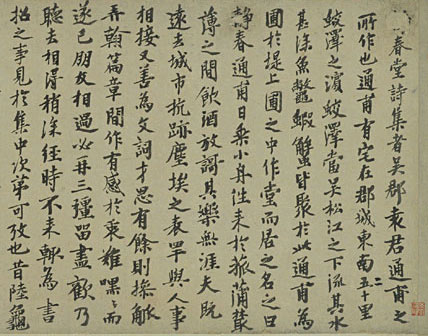 春堂詩集者吳郡袁君通甫之
所作也通甫有宅在郡城東南五十里
蛟澤之濱蛟澤當吳松江之下流其水
甚深魚鱉蝦蟹皆聚於此通甫為
圃於堤上圃之中作堂而居之名之曰
靜春通甫日乘小舟往來於菰蒲叢
薄之間飲酒放謌其樂無涯夫既
遠去城市抗跡塵埃之表罕與人事
相接又善為文詞才思有餘則操觚
弄翰篇章間作有感於衷雖嘿嘿而
遂已朋友相過必再三彊留盡歡乃
聽去相得稍深經時不來輒為書
招之事見於集中次第可攷也昔陸龜